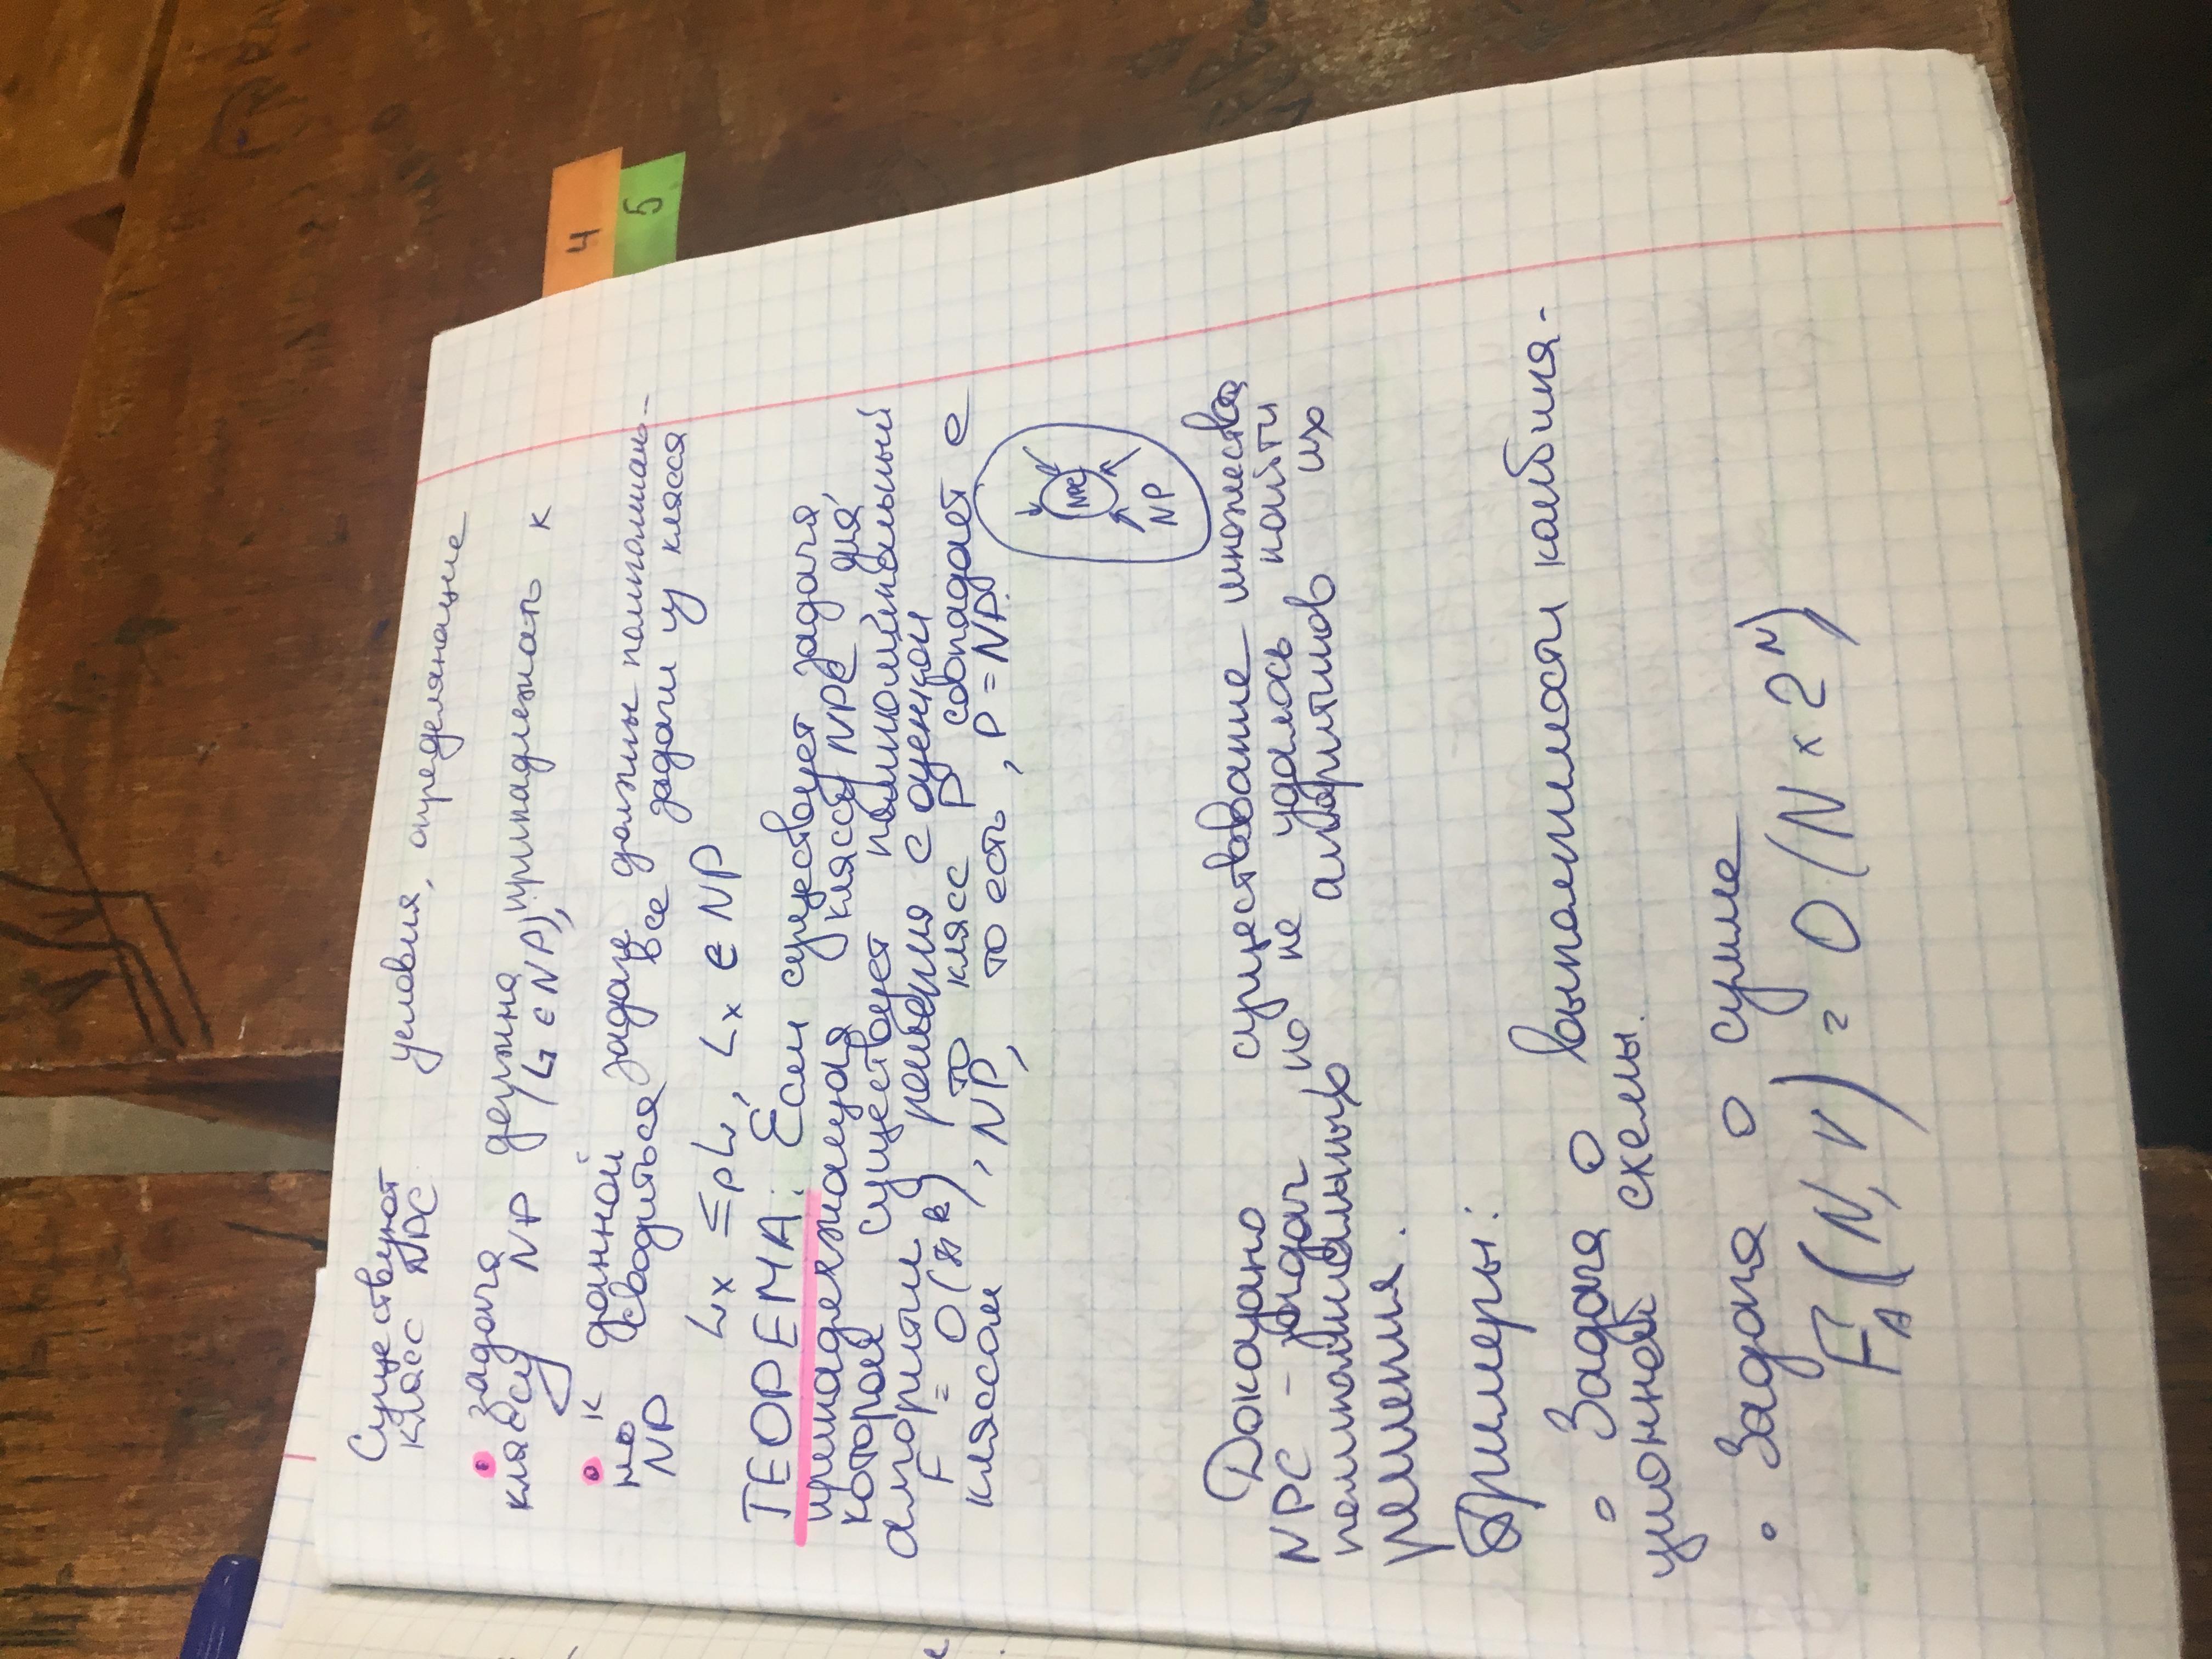 Существуют условия, определяющие
класс NPC
• задача должна принадлежать к
классу NP (L ∈ NP);
• к данной задаче должны полиномиаль-
но сводиться все задачи из класса
NP
Lx ≤p L, Lx ∈ NP
ТЕОРЕМА: Если существует задача,
принадлежащая классу NPC, для
которой существует полиноминальный
алгоритм решения с оценкой
F = O( k), то класс P совпадает с
классом NP, то есть, P = NP.
NPC
NP
Доказано существование множества
NPC - задач, но не удалось найти
полиномиальных алгоритмов их
решения.
Примеры:
• Задача о выполнимости комбина-
ционной схемы.
• Задача о сумме
F_A(N, V) = O(N × 2^N)
4
5